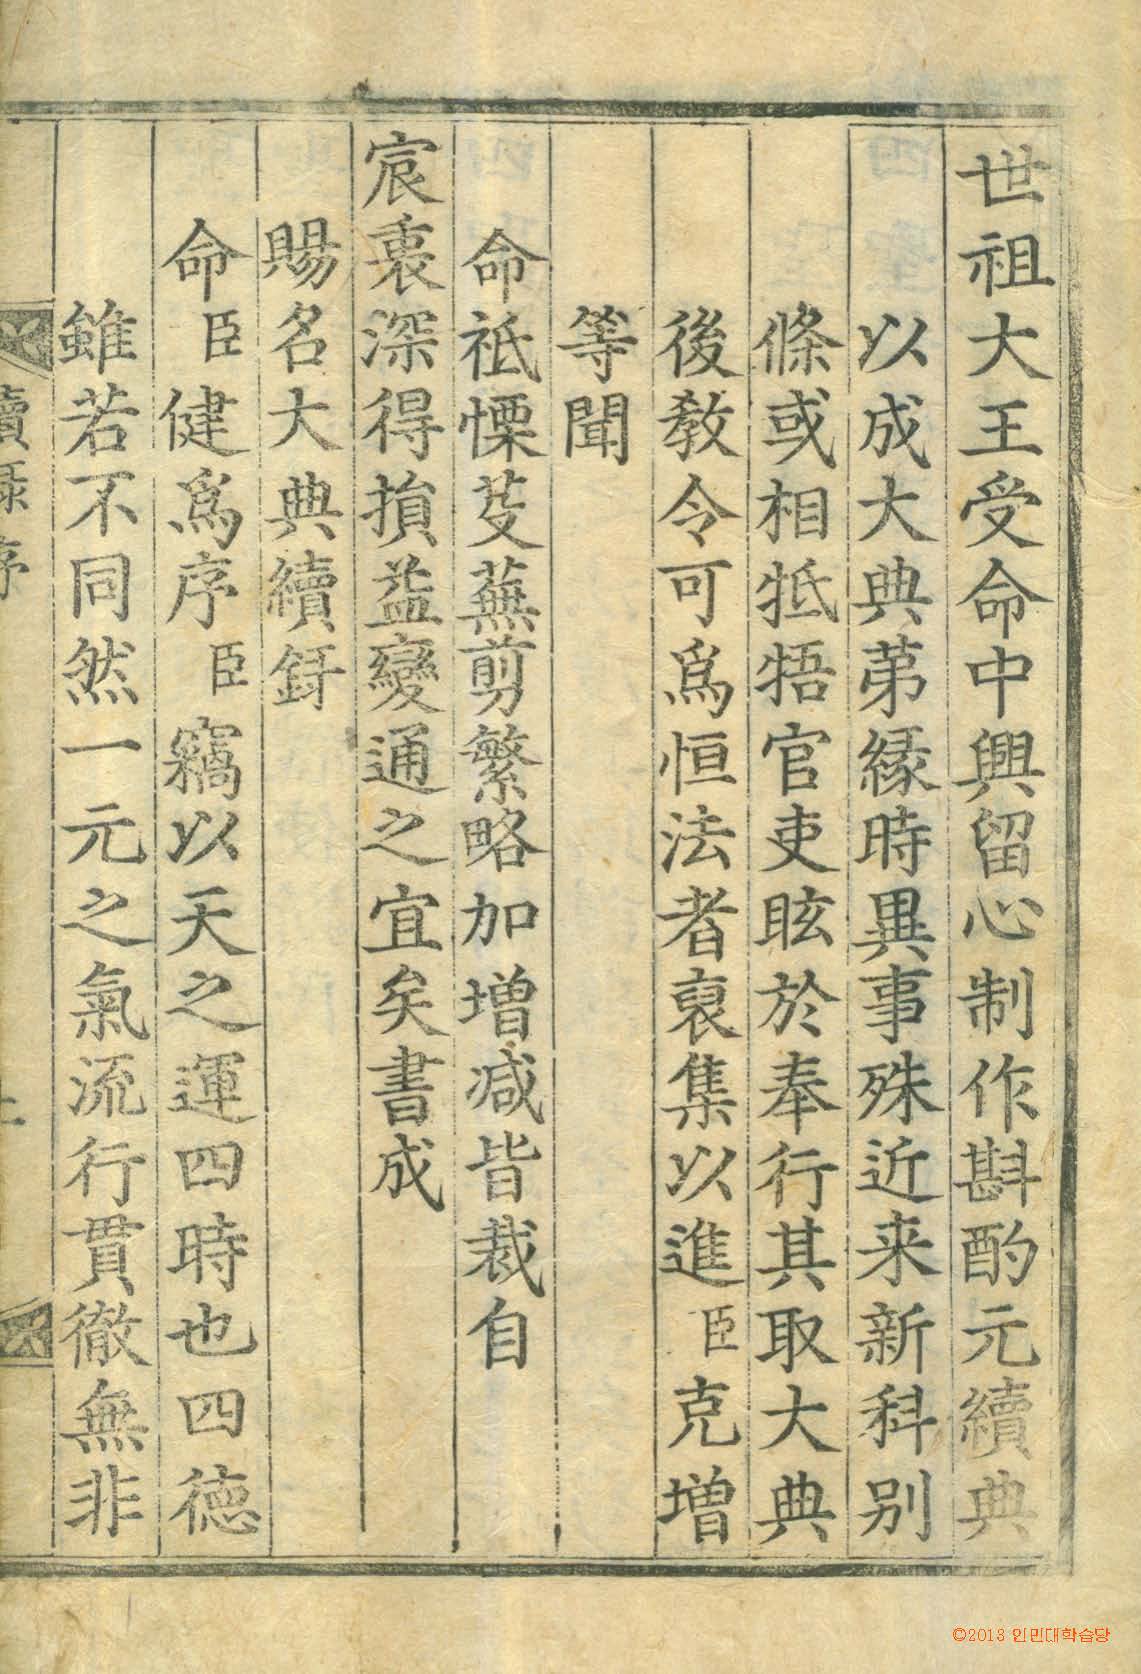 世祖大王受命中興留心制作斟酌元續典
以成大典苐緣時異事殊近来新科别
條或相牴牾官吏眩於奉行其取大典
後敎令可爲恒法者裒集以進臣克增
等聞
命祗慄芟蕪剪繁略加增减皆裁自
宸衷深得損益變通之宜矣書成
賜名大典續録
命臣健爲序臣竊以天之運四時也四德
雖若不同然一元之氣流行貫徹無非
續録序
©2013 인민대학습당